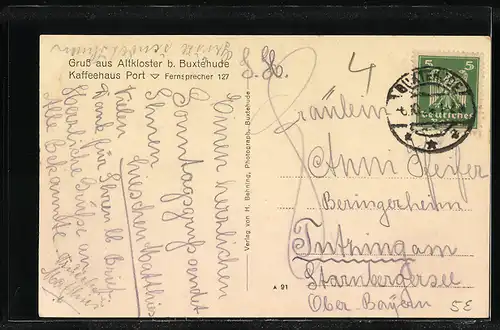 Gruß aus Altkloster b. Buxtehude
Kaffeehaus Port Fernsprecher 127
S. H.
4
Einen herzlichen
Sonntagsgruß sendet
Ihnen
Lieschen Matthies
Vielen
Dank für Ihren lb Brief.
Herzliche Grüße an
Alle Bekannte
Verlag von H. Behning, Photograph, Buxtehude
A 91
Fräulein
Beringerheim
Tuthingam
Starnbergersee
Ober-Bayern
5E
BUXTEHUDE
5 5
Deutsches